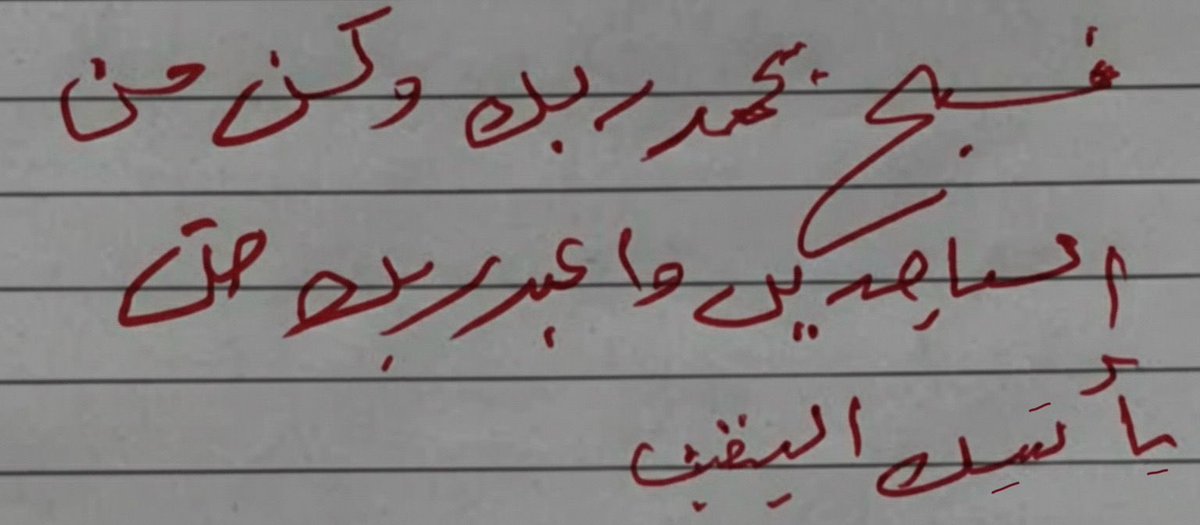 فسبح بحمد ربك وكن من
الساجدين واعبد ربك حتى
يأتيك اليقين